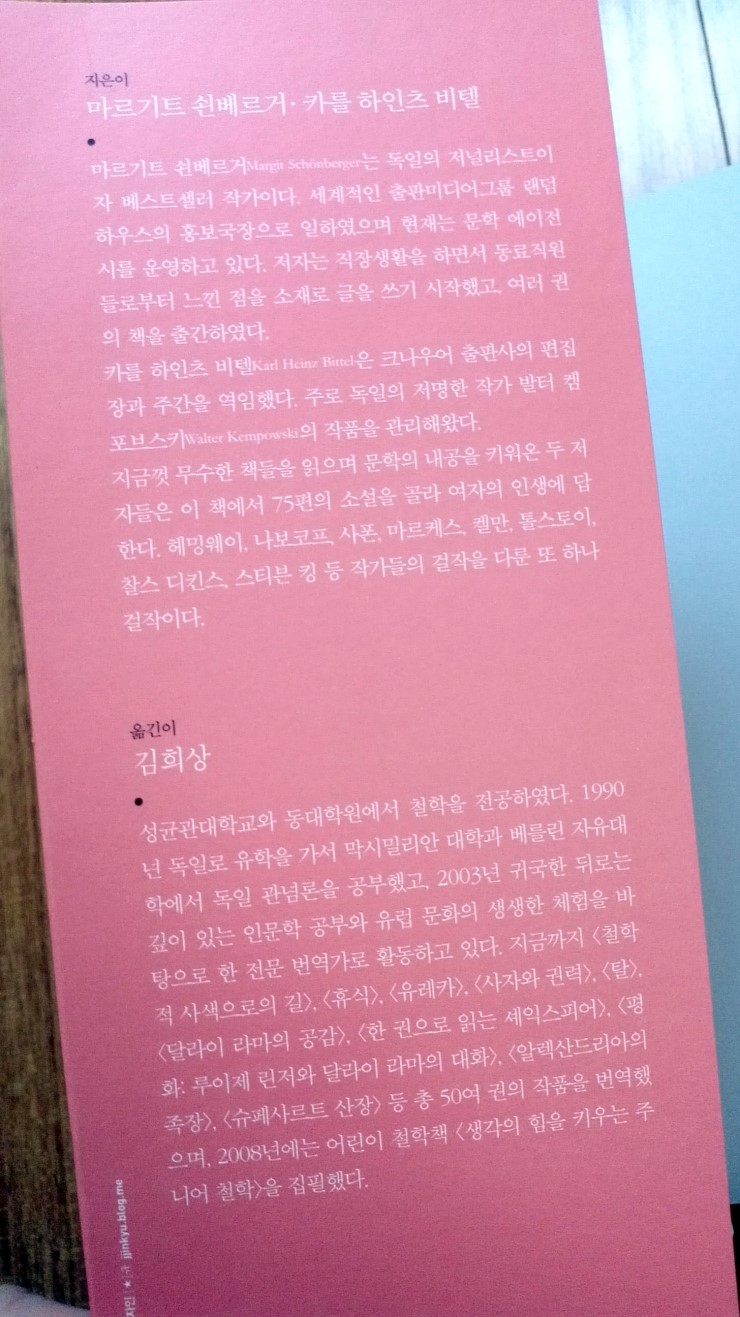 지은이
마르기트 쇤베르거 · 카를 하인츠 비텔
마르기트 쇤베르거Margit Schönberger는 독일의 저널리스트이
자 베스트셀러 작가이다. 세계적인 출판미디어그룹 랜덤
하우스의 홍보국장으로 일하였으며 현재는 문학 에이전
시를 운영하고 있다. 저자는 직장생활을 하면서 동료직원
들로부터 느낀 점을 소재로 글을 쓰기 시작했고, 여러 권
의 책을 출간하였다.
카를 하인츠 비텔Karl Heinz Bittel은 크나우어 출판사의 편집
장과 주간을 역임했다. 주로 독일의 저명한 작가 발터 켐
포브스키Walter Kempowski의 작품을 관리해왔다.
지금껏 무수한 책들을 읽으며 문학의 내공을 키워온 두 저
자들은 이 책에서 75편의 소설을 골라 여자의 인생에 답
한다. 헤밍웨이, 나보코프, 사폰, 마르케스, 켈만, 톨스토이,
찰스 디킨스, 스티븐 킹 등 작가들의 걸작을 다룬 또 하나
걸작이다.
옮긴이
김희상
성균관대학교와 동대학원에서 철학을 전공하였다. 1990
년 독일로 유학을 가서 막시밀리안 대학과 베를린 자유대
학에서 독일 관념론을 공부했고, 2003년 귀국한 뒤로는
깊이 있는 인문학 공부와 유럽 문화의 생생한 체험을 바
탕으로 한 전문 번역가로 활동하고 있다. 지금까지 〈철학
적 사색으로의 길〉, 〈휴식〉, 〈유레카〉, 〈사자와 권력〉, 〈탈〉,
〈달라이 라마의 공감〉, 〈한 권으로 읽는 셰익스피어〉, 〈평
화: 루이제 린저와 달라이 라마의 대화〉, 〈알렉산드리아의
족장〉, 〈슈페사르트 산장〉 등 총 50여 권의 작품을 번역했
으며, 2008년에는 어린이 철학책 〈생각의 힘을 키우는 주
니어 철학〉을 집필했다.
자인 ★규 jjinkyu.blog.me